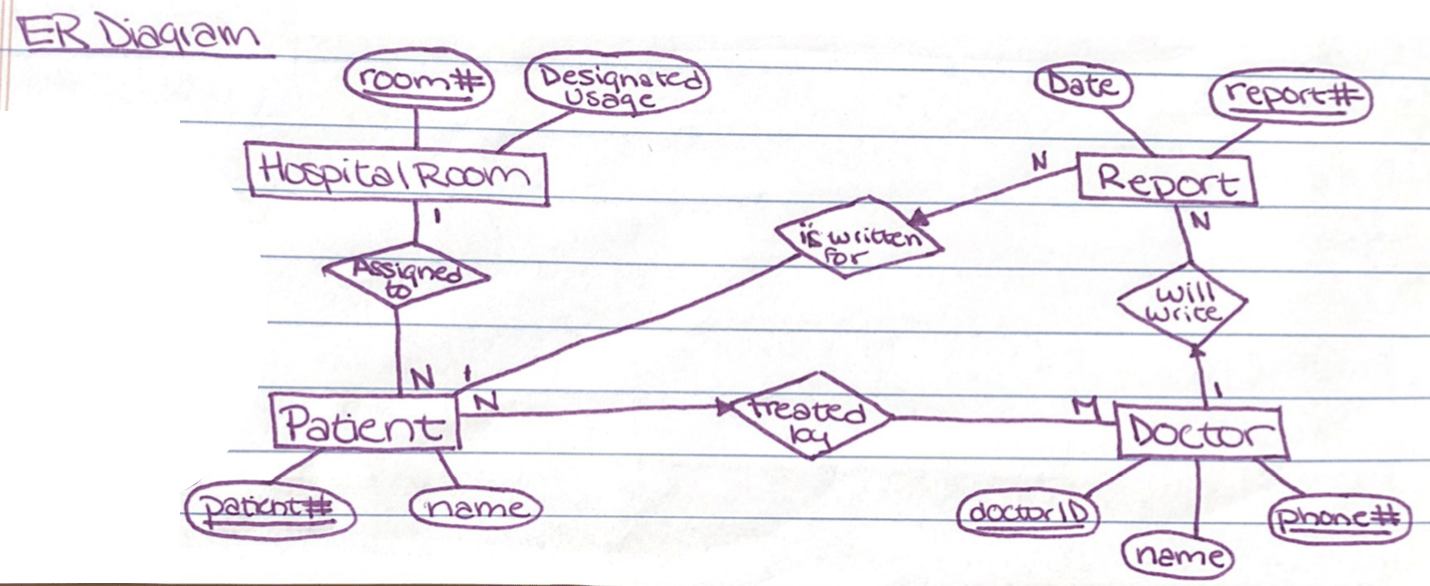 ER Diagram
room#
Designated
Usage
Date
report#
Hospital Room
Report
N
1
N
is written
for
Assigned
to
will
write
N
1
N
1
Patient
treated
by
M
Doctor
patient#
name
doctorID
name
phone#